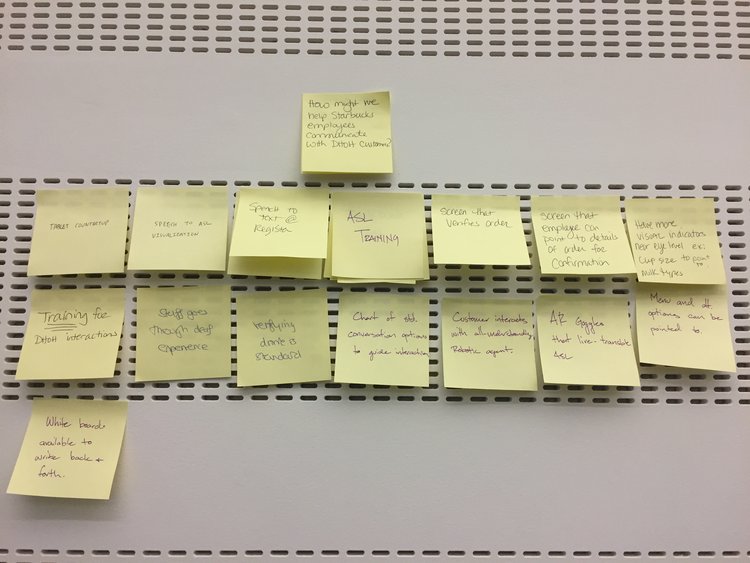 How might we
help Starbucks
employees
communicate
with D/HoH customers?
TABLET COUNTERTOP
SPEECH TO ASL
VISUALIZATION
Speech to
text @
Register
ASL
TRAINING
Screen that
verifies order
Screen that
employee can
point to details
of order for
confirmation
Have more
visual indicators
near eye level ex:
Cup size to point to
milk types
Training for
D/HoH interactions
Staff goes
through deaf
experience
Verifying
drink is
standard
Chart of std.
conversation options
to guide interaction
Customer interacts
with all-understanding
Robotic agent.
AR Goggles
that live-translate
ASL
Menu and all
options can be
pointed to.
White boards
available to
write back +
forth.